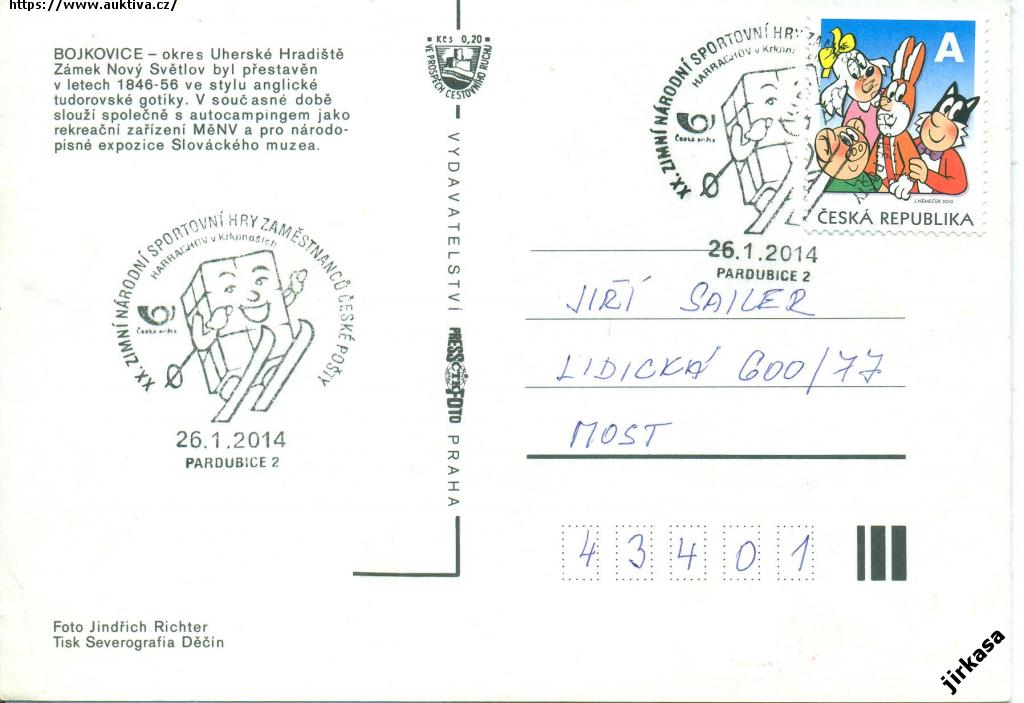 https://www.auktiva.cz/
BOJKOVICE – okres Uherské Hradiště
Zámek Nový Světlov byl přestavěn
v letech 1846-56 ve stylu anglické
tudorovské gotiky. V současné době
slouží společně s autocampingem jako
rekreační zařízení MěNV a pro národo-
pisné expozice Slováckého muzea.
Kčs 0,20
VE PROSPĚCH CESTOVNÍHO RUCHU
XX. ZIMNÍ NÁRODNÍ SPORTOVNÍ HRY ZA
HARRACHOV v Krkonoších
Česká pošta
26.1.2014
PARDUBICE 2
A
J. NĚMEČEK 2010
ČESKÁ REPUBLIKA
XX. ZIMNÍ NÁRODNÍ SPORTOVNÍ HRY ZAMĚSTNANCŮ ČESKÉ POŠTY
HARRACHOV v Krkonoších
Česká pošta
26.1.2014
PARDUBICE 2
VYDAVATELSTVÍ PRESSFOTO PRAHA
ČTK
JIŘÍ SAILER
LIDICKÁ 600/77
MOST
43401
Foto Jindřich Richter
Tisk Severografia Děčín
jirkasa